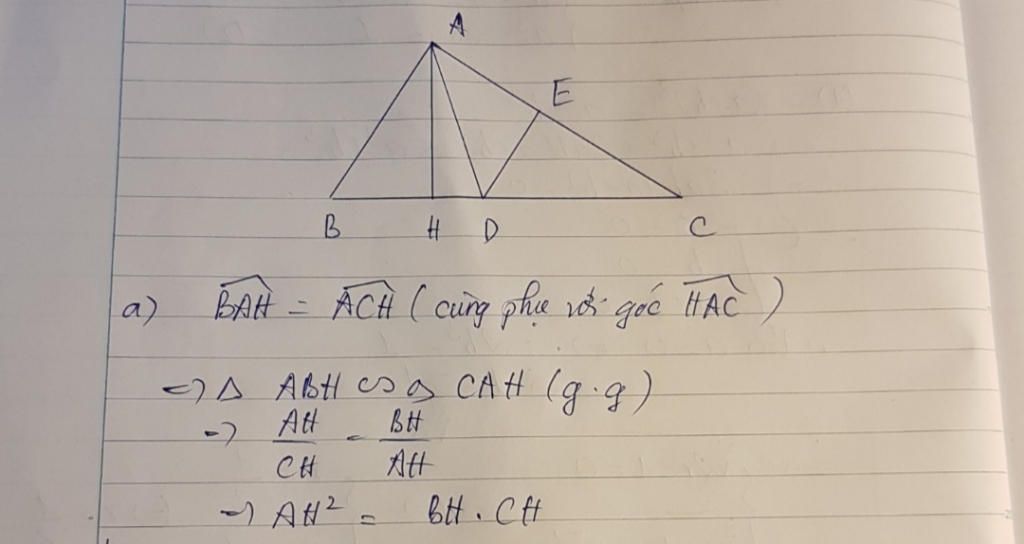 A
E
B H D C
a) BAH = ACH ( cùng phụ với góc HAC )
=> Δ ABH ∽ Δ CAH (g.g)
=> AH/CH = BH/AH
=> AH² = BH . CH